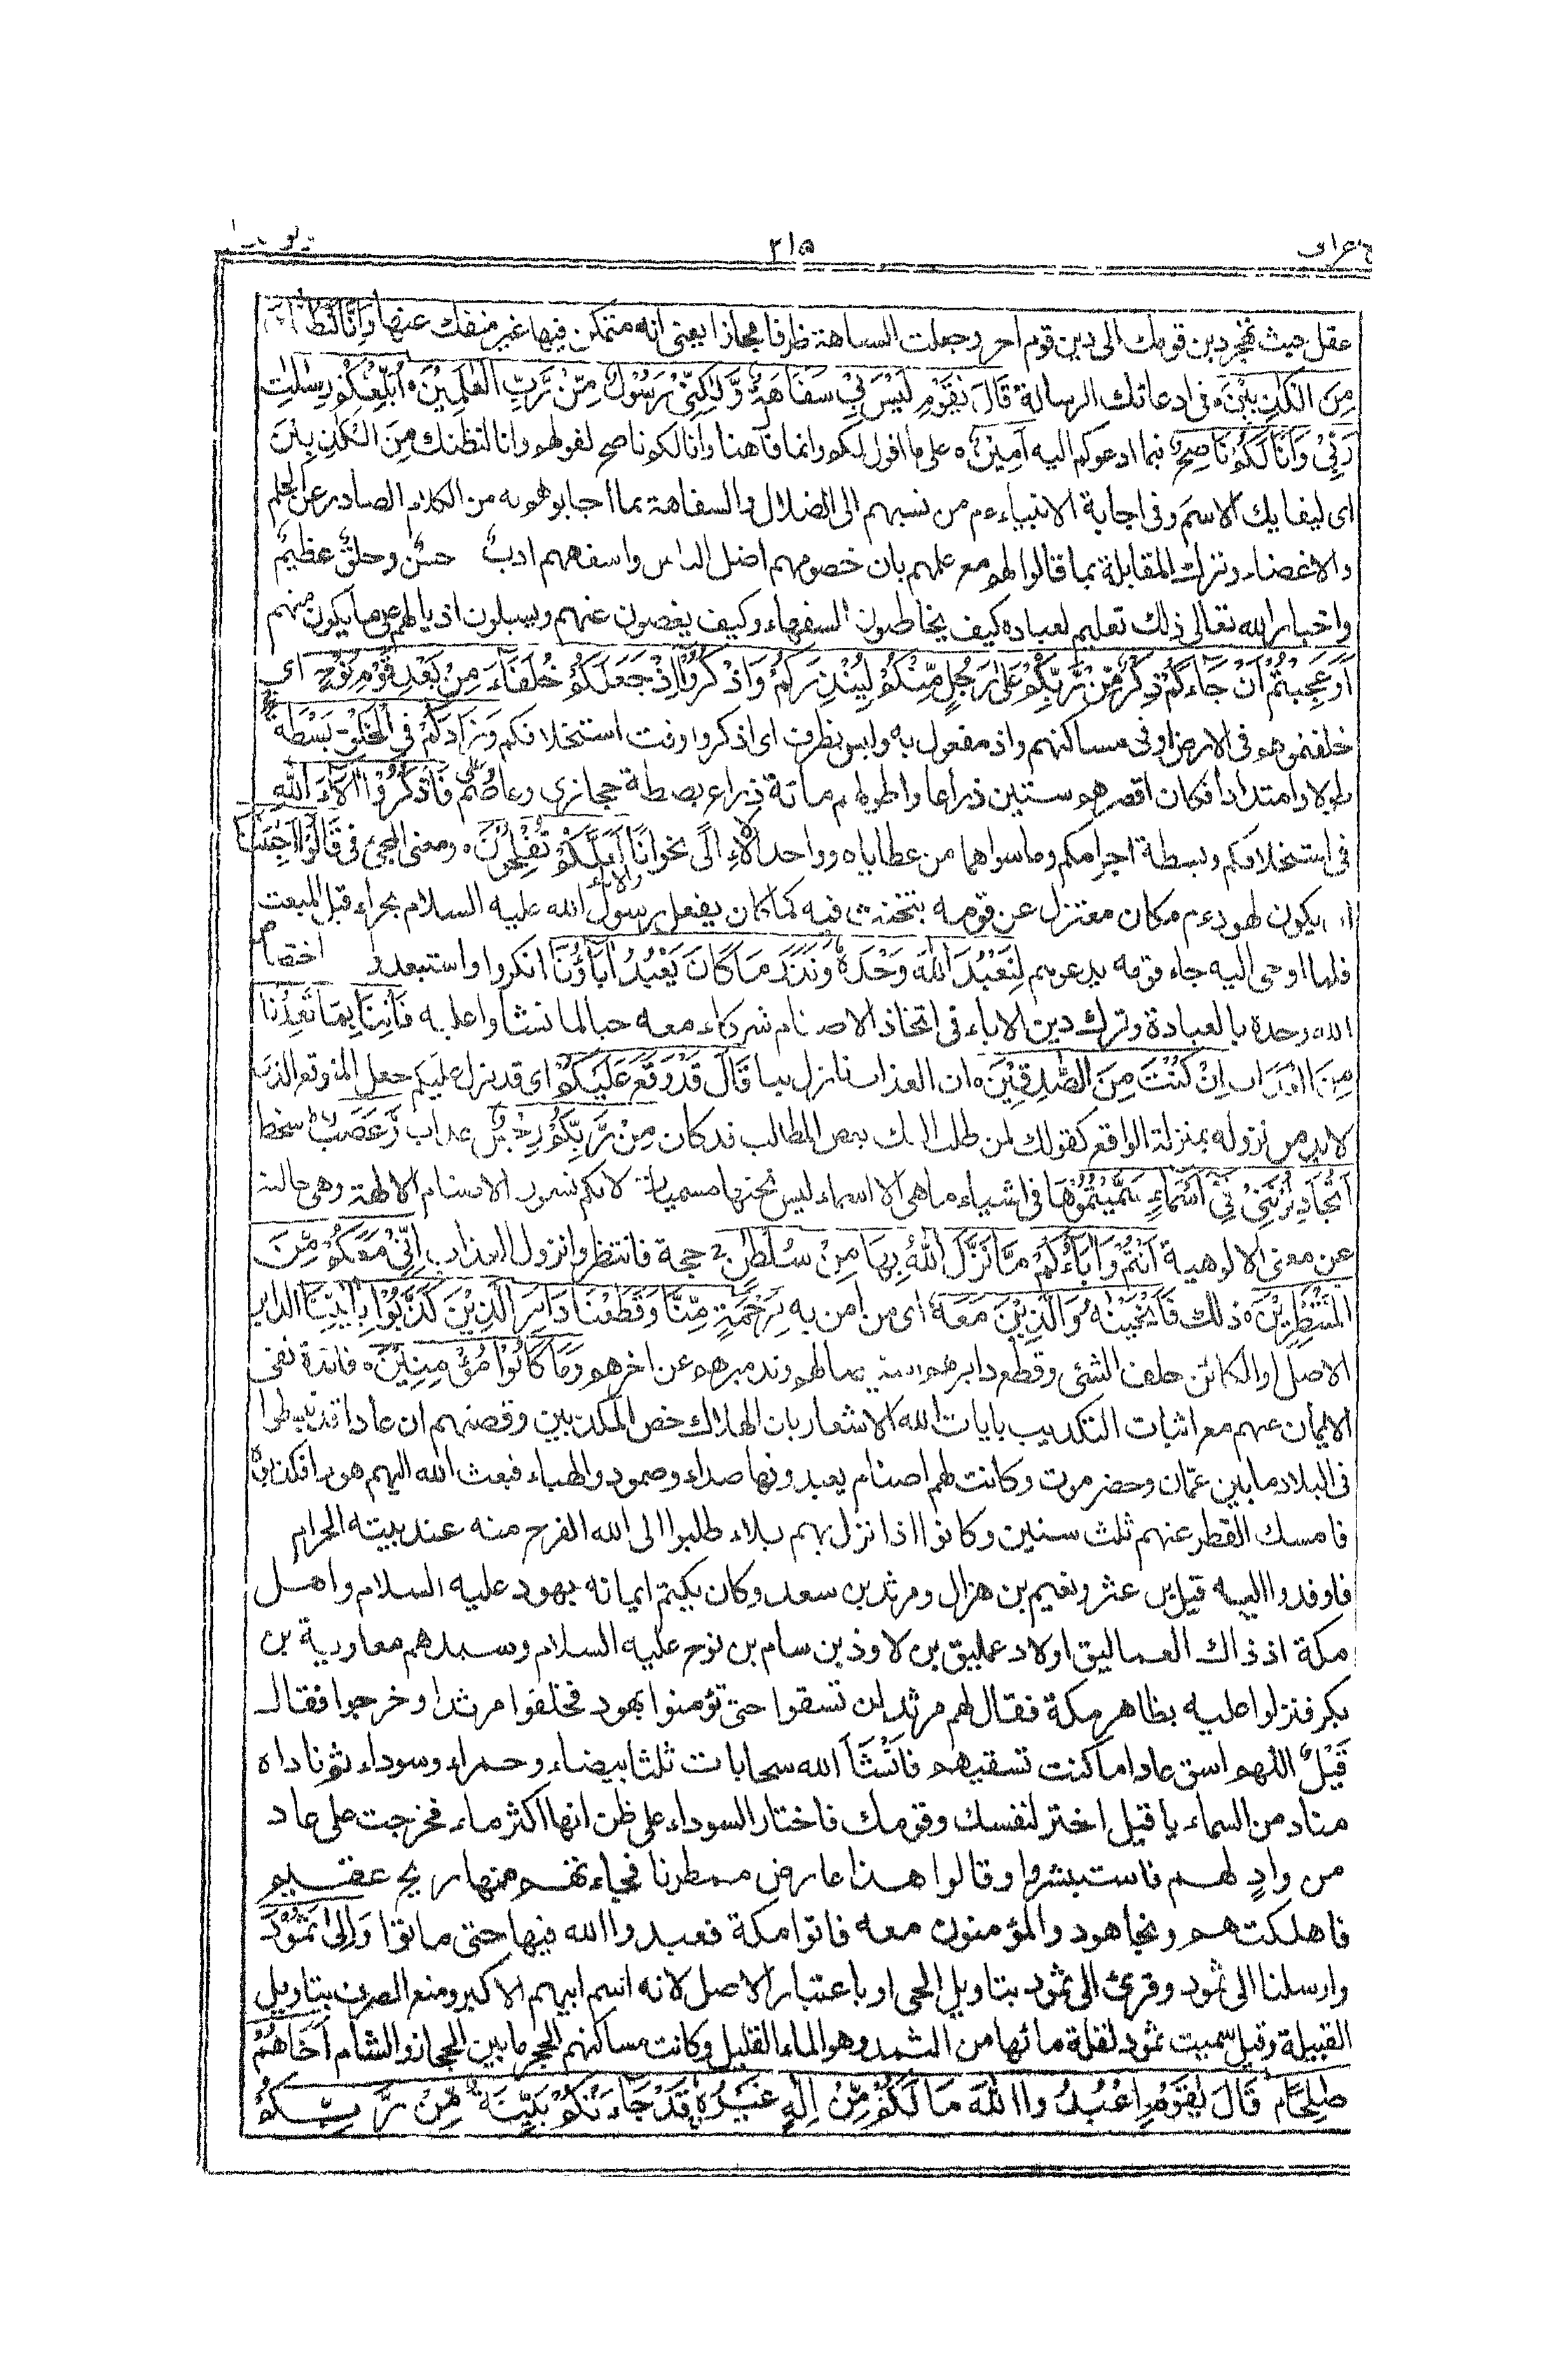 اعراف ٢١٥
عقل حيث تهجر دين قومك الى دين قوم اخر وجعلت السفاهة ظرفا مجازا يعنى انه متمكن فيها غير منفك عنها وَاِنَّا لَنَظُنُّكَ
مِنَ الْكٰذِبِيْنَ ه فى ادعائك الرسالة قَالَ يٰقَوْمِ لَيْسَ بِيْ سَفَاهَةٌ وَّلٰكِنِّيْ رَسُوْلٌ مِّنْ رَّبِّ الْعٰلَمِيْنَ ه اُبَلِّغُكُمْ رِسٰلٰتِ
رَبِّيْ وَاَنَا لَكُمْ نَاصِحٌ فيما ادعوكم اليه اَمِيْنٌ ه على ما اقول لكم وانما قال هنا وانا لكم ناصح لقولهم وانا لنظنك مِنَ الْكٰذِبِيْنَ
اى ليقابل الاسم وفى اجابة الانبياء ءم من نسبهم الى الضلال والسفاهة بما اجابوهم به من الكلام الصادر عن الحلم
والاغضاء وترك المقابلة بما قالوا لهم مع علمهم بان خصومهم اضل الناس واسفههم ادبٌ حسنٌ وخلقٌ عظيمٌ
واخبار الله تعالى ذلك تعليم لعباده كيف يخاطبون السفهاء وكيف يغضون عنهم ويسبلون اذيالهم على ما يكون منهم
اَوَعَجِبْتُمْ اَنْ جَآءَكُمْ ذِكْرٌ مِّنْ رَّبِّكُمْ عَلٰى رَجُلٍ مِّنْكُمْ لِيُنْذِرَكُمْ وَاذْكُرُوْٓا اِذْ جَعَلَكُمْ خُلَفَآءَ مِنْ بَعْدِ قَوْمِ نُوْحٍ اى
خلفتموهم فى الارض او فى مساكنهم واذ مفعول به وليس بظرف اى اذكروا وقت استخلافكم وَزَادَكُمْ فِى الْخَلْقِ بَسْطَةً
طولا وامتدادا فكان اقصرهم ستين ذراعا واطولهم مائة ذراع بصطة حجازى وعاصم فَاذْكُرُوْٓا اٰلَآءَ اللهِ
فى استخلافكم وبسطة اجرامكم وما سواهما من عطاياه وواحد الآلاء اِلًى نحو انًا والاناء لَعَلَّكُمْ تُفْلِحُوْنَ ه ومعنى المجئ فى قَالُوْٓا اَجِئْتَنَا
ان يكون لهود ءم مكان معتزل عن قومه يتحنث فيه كما كان يفعل رسول الله عليه السلام بحراء قبل المبعث
فلما اوحى اليه جاء قومه يدعوهم لِنَعْبُدَ اللهَ وَحْدَهٗ وَنَذَرَ مَا كَانَ يَعْبُدُ اٰبَآؤُنَا انكروا واستبعدوا اختصاص
الله وحده بالعبادة وترك دين الاباء فى اتخاذ الاصنام شركاء معه حبا لما نشأوا عليه فَأْتِنَا بِمَا تَعِدُنَا
من العذاب اِنْ كُنْتَ مِنَ الصّٰدِقِيْنَ ه ان العذاب نازل بنا قَالَ قَدْ وَقَعَ عَلَيْكُمْ اى قد نزل عليكم جعل المتوقع الذى
لا بد من نزوله بمنزلة الواقع كقولك لمن طلب اليك بعض المطالب قد كان مِنْ رَّبِّكُمْ رِجْسٌ عذاب وَّغَضَبٌ سخط
اَتُجَادِلُوْنَنِيْ فِيْٓ اَسْمَآءٍ سَمَّيْتُمُوْهَآ فى اشياء ما هى الا اسماء ليس تحتها مسميات لانكم تسمون الاصنام الالهة وهى خالية
عن معنى الالوهية اَنْتُمْ وَاٰبَآؤُكُمْ مَّا نَزَّلَ اللهُ بِهَا مِنْ سُلْطٰنٍ حجة فانتظروا نزول العذاب اِنِّيْ مَعَكُمْ مِّنَ
الْمُنْتَظِرِيْنَ ه ذلك فَاَنْجَيْنٰهُ وَالَّذِيْنَ مَعَهٗ اى من امن به بِرَحْمَةٍ مِّنَّا وَقَطَعْنَا دَابِرَ الَّذِيْنَ كَذَّبُوْا بِاٰيٰتِنَا الدابر
الاصل او الكائن خلف الشئ وقطع دابرهم استيصالهم وتدميرهم عن اخرهم وَمَا كَانُوْا مُؤْمِنِيْنَ ه فائدة نفى
الايمان عنهم مع اثبات التكذيب بايات الله الاشعار بان الهلاك خص المكذبين وقصتهم ان عادا قد تبسطوا
فى البلاد ما بين عمّان وحضرموت وكانت لهم اصنام يعبدونها صداء وصمود والهباء فبعث الله اليهم هودا فكذبوه
فامسك القطر عنهم ثلث سنين وكانوا اذا نزل بهم بلاء طلبوا الى الله الفرج منه عند بيته الحرام
فاوفدوا اليه قيل بن عنز ونعيم بن هزال ومرثد بن سعد وكان يكتم ايمانه بهود عليه السلام واهل
مكة اذ ذاك العماليق اولاد عمليق بن لاوذ بن سام بن نوح عليه السلام وسيدهم معاوية بن
بكر فنزلوا عليه بظاهر مكة فقال لهم مرثد لن تسقوا حتى تؤمنوا بهود فخلفوا مرثدا وخرجوا فقال
قَيْلٌ اللهم اسق عادا ما كنت تسقيهم فانْشَأ الله سحابات ثلثا بيضاء وحمراء وسوداء ثم ناداه
مناد من السماء يا قيل اختر لنفسك وقومك فاختار السوداء على ظن انها اكثر ماء فخرجت على عاد
من وادٍ لهم فاستبشروا وقالوا هذا عارض ممطرنا فجاءتهم منها ريح عقيم
فاهلكتهم ونجا هود والمؤمنون معه فاتوا مكة فعبدوا الله فيها حتى ماتوا وَاِلٰى ثَمُوْدَ
وارسلنا الى ثمود وقرئ الى ثمود بتاويل الحى او باعتبار الاصل لانه اسم ابيهم الاكبر ومنع الصرف بتاويل
القبيلة وقيل سميت ثمود لقلة مائها من الثمد وهو الماء القليل وكانت مساكنهم الحجر ما بين الحجاز والشام اَخَاهُمْ
صٰلِحًا م قَالَ يٰقَوْمِ اعْبُدُوا اللهَ مَا لَكُمْ مِّنْ اِلٰهٍ غَيْرُهٗ قَدْ جَآءَتْكُمْ بَيِّنَةٌ مِّنْ رَّبِّكُمْ